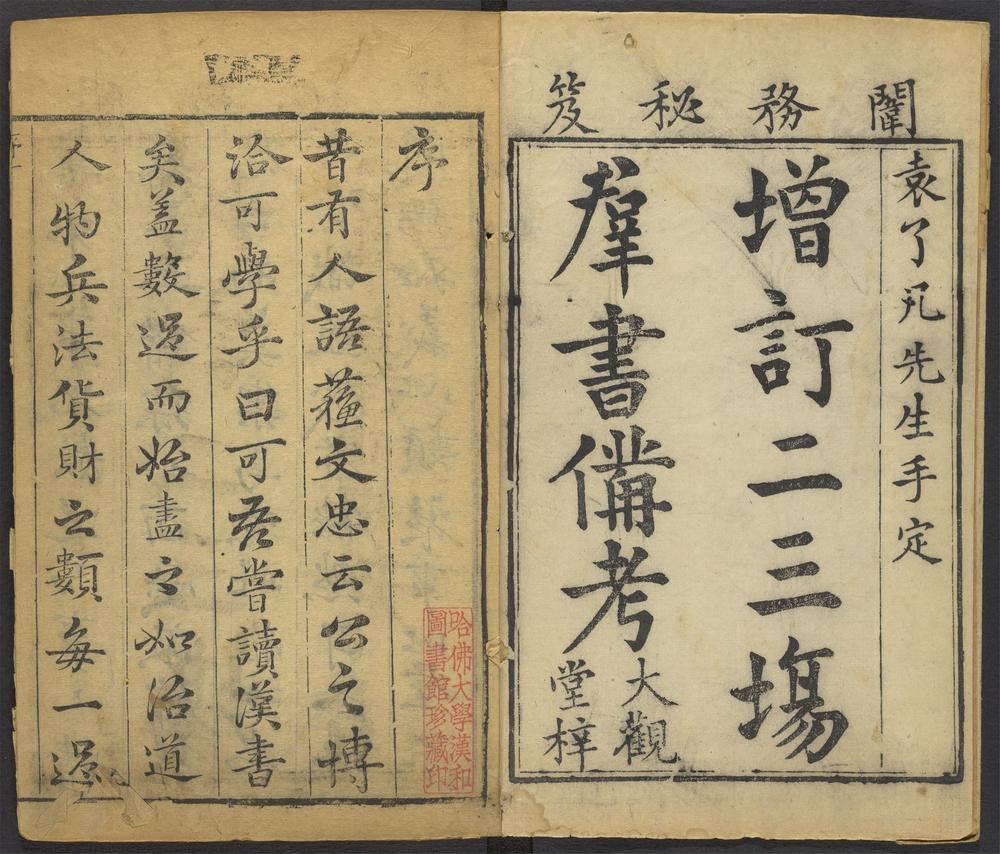 闈務秘笈
袁了凡先生手定
增訂二三塲
羣書備考
大觀
堂梓
序
昔有人語蘓文忠云公之博
洽可學乎曰可吾嘗讀漢書
矣葢數過而始盡之如治道
人物兵法貨財之類每一過
哈佛大學漢和
圖書館珍藏印